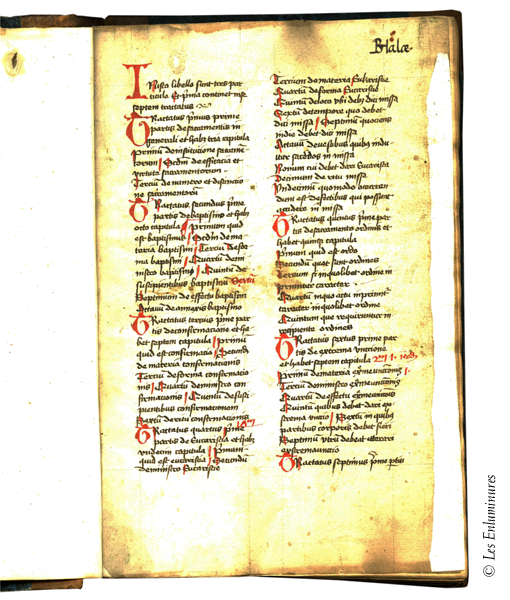 In isto libello sunt tres par
ticule Et prima continet in se
septem tractatus
Tractatus primus prime
partis de sacramentis in
generali et habet tria capitula
Primum de institucione sacramen
torum Secundum de efficatia et
virtute sacramentorum
Tercium de numero et distinctio
ne sacramentorum
Tractatus secundus prime
partis de baptismo et habet
octo capitula Primum quid
est baptismus Secundum de ma
teria baptismi Tercium de for
ma baptismi Quartum de mi
nistro baptismi Quintum de
suscipientibus baptismum Sextum
Septimum de effectu baptismi
Octavum de
Tractatus tercius prime par
tis de confirmacione et ha
bet septem capitula Primum
quid est confirmacio Secundum
de materia confirmacionis
Tercium de forma confirmacio
nis Quartum de ministro con
firmacionis Quintum de susci
pientibus confirmacionem
Sextum de ritu confirmacionis
Tractatus quartus prime
partis de Eucaristia et habet
undecim capitula Primum
quid est eucaristia Secundum
de ministro Eucaristie
Tercium de materia Eukaristie
Quartum de forma Eucaristie
Quintum de loco ubi debet dici missa
Sextum de tempore quo debet
dici missa Septimum quociens
in die debet dici missa
Octavum de vestibus quibus indu
itur sacerdos in missa
Nonum cui debet dari Eucaristia
Decimum de ritu missa
Undecimum quomodo occurren
dum est defectibus qui possunt
accidere in missa
Tractatus quintus prime par
tis de sacramento ordinis et
habet quinque capitula
Primum quid est ordo
Secundum quot sunt ordines
Tercium si in quolibet ordine in
primitur caracter
Quartum in quo actu imprimitur
caracter in quolibet ordine
Quintum que requiruntur in
recipiente ordines
Tractatus sextus prime par
tis de extrema unctione
et habet septem capitula
Primum de materia extreme unctionis
Tercium de ministro extreme unctionis
Quartum de effectu extreme unctionis
Quintum quibus debet dari ex
trema unctio Sextum in quibus
partibus corporis debet fieri
Septimum utrum debeat iterari
extrema unctio
Tractatus septimus prime partis
© Les Enluminures